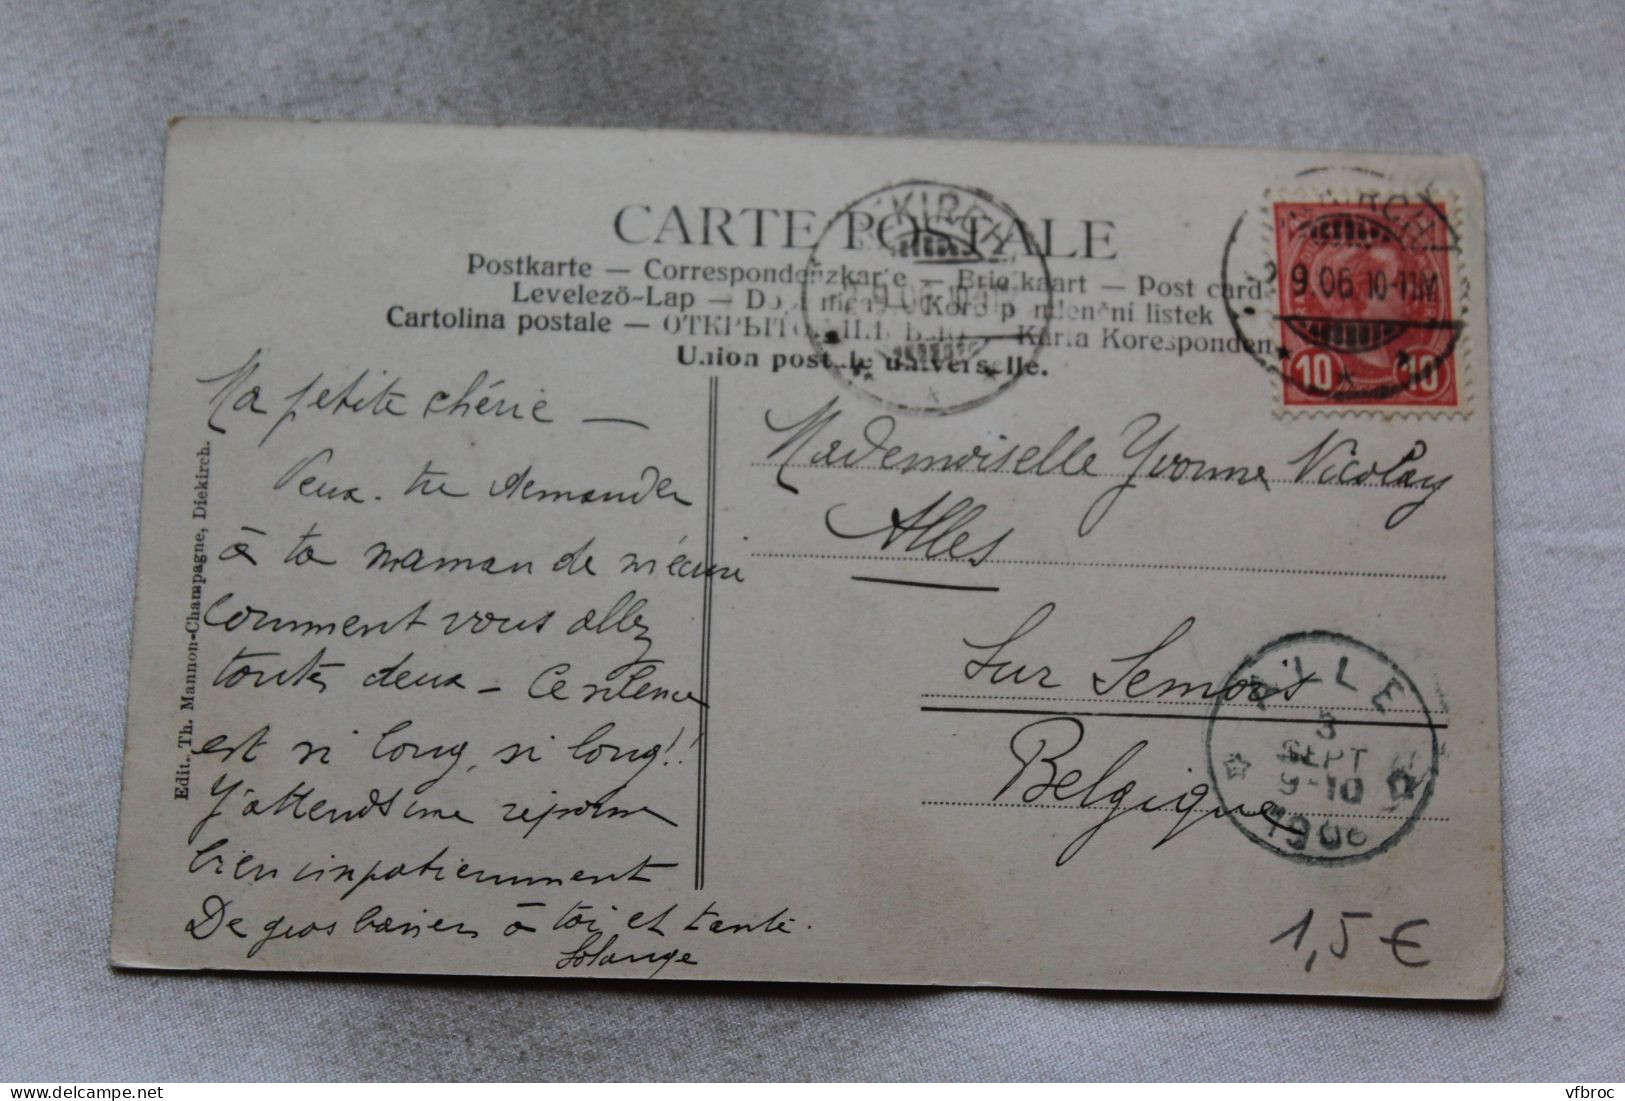 CARTE POSTALE
Postkarte — Correspondenzkarte — Briefkaart — Post card
Levelező-Lap — Dopisnica — Korespondenční listek
Cartolina postale — ОТКРЫТОЕ — Karta Koresponden
Union postale universelle.
KIRCH
9.06. 10-11
KIRCH
9 06 10-11M
10 10
Edit. Th. Mannon-Champagne, Diekirch.
Ma petite chérie —
Peux-tu demander
à ta maman de m'écrire
comment vous allez
toutes deux — Ce silence
est si long, si long!!
J'attends une réponse
bien impatiemment
De gros baisers à toi et tante.
Solange
Mademoiselle Yvonne Nicolay
Alles
Sur Semois
Belgique
ALLE
3
SEPT
9-10
1906
1,5 €
vfbroc